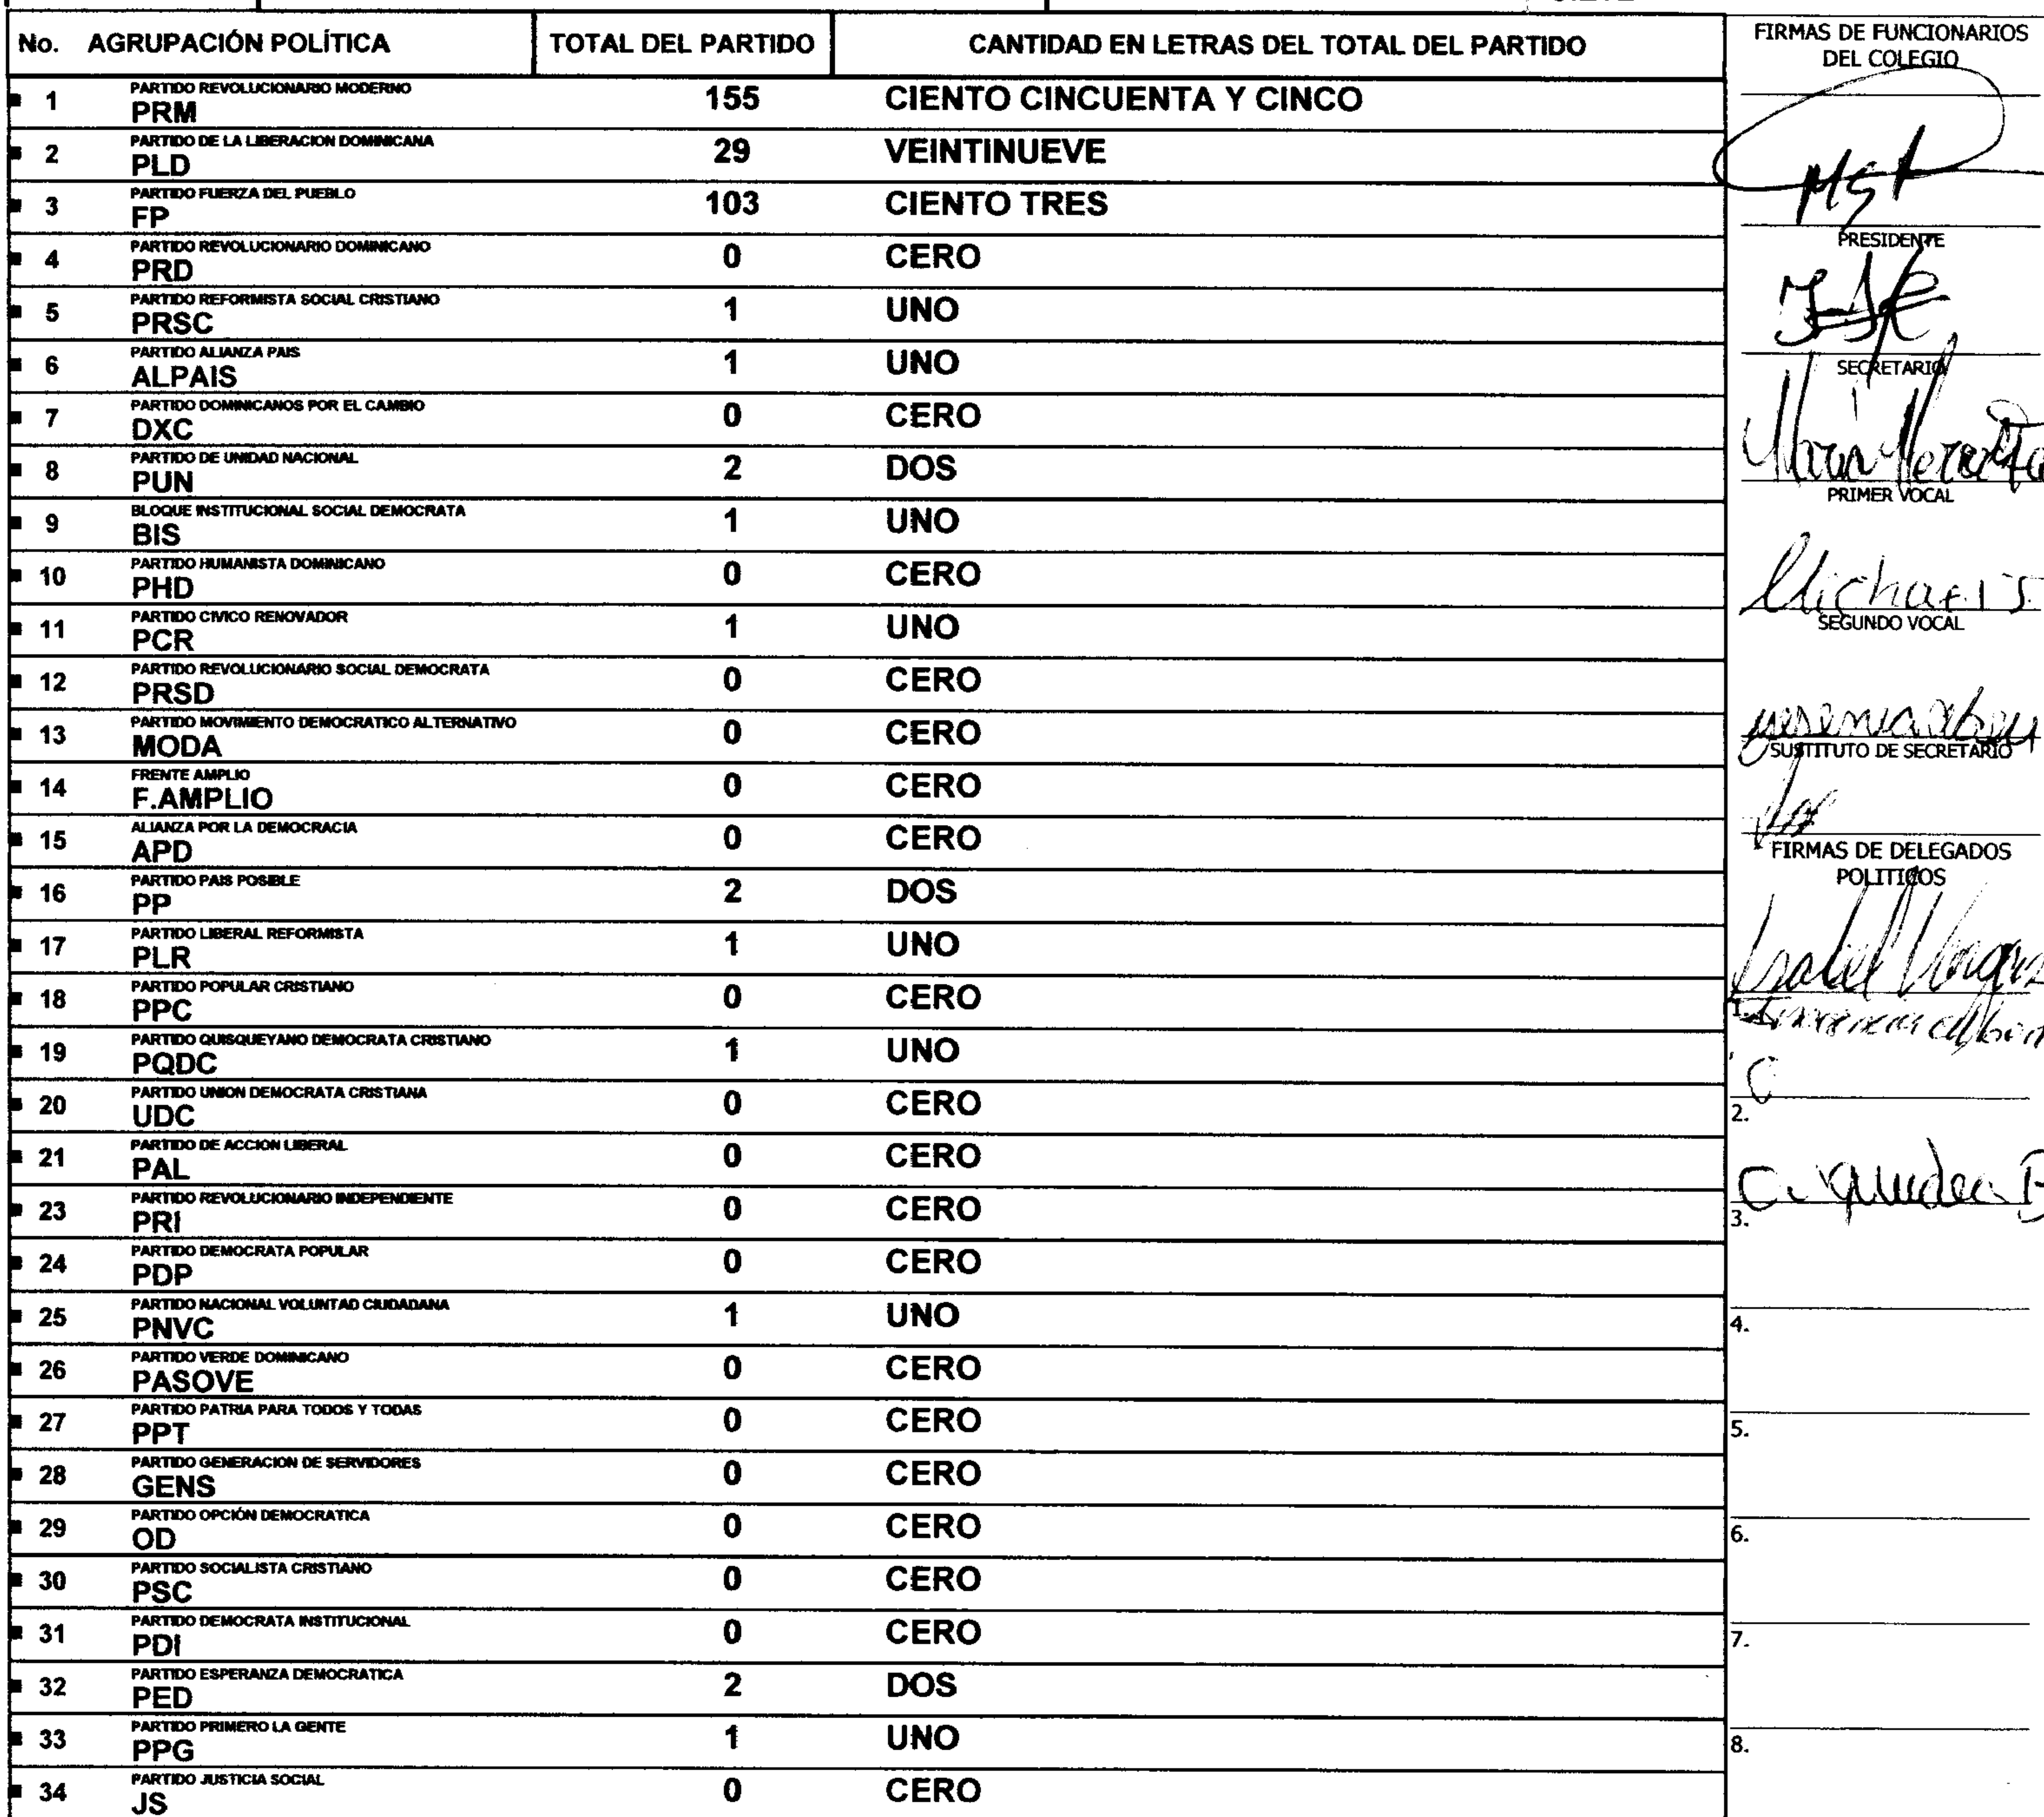 No. AGRUPACIÓN POLÍTICA TOTAL DEL PARTIDO CANTIDAD EN LETRAS DEL TOTAL DEL PARTIDO
1 PARTIDO REVOLUCIONARIO MODERNO
PRM 155 CIENTO CINCUENTA Y CINCO
2 PARTIDO DE LA LIBERACION DOMINICANA
PLD 29 VEINTINUEVE
3 PARTIDO FUERZA DEL PUEBLO
FP 103 CIENTO TRES
4 PARTIDO REVOLUCIONARIO DOMINICANO
PRD 0 CERO
5 PARTIDO REFORMISTA SOCIAL CRISTIANO
PRSC 1 UNO
6 PARTIDO ALIANZA PAIS
ALPAIS 1 UNO
7 PARTIDO DOMINICANOS POR EL CAMBIO
DXC 0 CERO
8 PARTIDO DE UNIDAD NACIONAL
PUN 2 DOS
9 BLOQUE INSTITUCIONAL SOCIAL DEMOCRATA
BIS 1 UNO
10 PARTIDO HUMANISTA DOMINICANO
PHD 0 CERO
11 PARTIDO CIVICO RENOVADOR
PCR 1 UNO
12 PARTIDO REVOLUCIONARIO SOCIAL DEMOCRATA
PRSD 0 CERO
13 PARTIDO MOVIMIENTO DEMOCRATICO ALTERNATIVO
MODA 0 CERO
14 FRENTE AMPLIO
F.AMPLIO 0 CERO
15 ALIANZA POR LA DEMOCRACIA
APD 0 CERO
16 PARTIDO PAIS POSIBLE
PP 2 DOS
17 PARTIDO LIBERAL REFORMISTA
PLR 1 UNO
18 PARTIDO POPULAR CRISTIANO
PPC 0 CERO
19 PARTIDO QUISQUEYANO DEMOCRATA CRISTIANO
PQDC 1 UNO
20 PARTIDO UNION DEMOCRATA CRISTIANA
UDC 0 CERO
21 PARTIDO DE ACCION LIBERAL
PAL 0 CERO
23 PARTIDO REVOLUCIONARIO INDEPENDIENTE
PRI 0 CERO
24 PARTIDO DEMOCRATA POPULAR
PDP 0 CERO
25 PARTIDO NACIONAL VOLUNTAD CIUDADANA
PNVC 1 UNO
26 PARTIDO VERDE DOMINICANO
PASOVE 0 CERO
27 PARTIDO PATRIA PARA TODOS Y TODAS
PPT 0 CERO
28 PARTIDO GENERACION DE SERVIDORES
GENS 0 CERO
29 PARTIDO OPCIÓN DEMOCRATICA
OD 0 CERO
30 PARTIDO SOCIALISTA CRISTIANO
PSC 0 CERO
31 PARTIDO DEMOCRATA INSTITUCIONAL
PDI 0 CERO
32 PARTIDO ESPERANZA DEMOCRATICA
PED 2 DOS
33 PARTIDO PRIMERO LA GENTE
PPG 1 UNO
34 PARTIDO JUSTICIA SOCIAL
JS 0 CERO
FIRMAS DE FUNCIONARIOS
DEL COLEGIO
PRESIDENTE
SECRETARIO
PRIMER VOCAL
SEGUNDO VOCAL
SUSTITUTO DE SECRETARIO
FIRMAS DE DELEGADOS
POLITICOS
Isabel Vargas
1.
2.
3.
4.
5.
6.
7.
8.